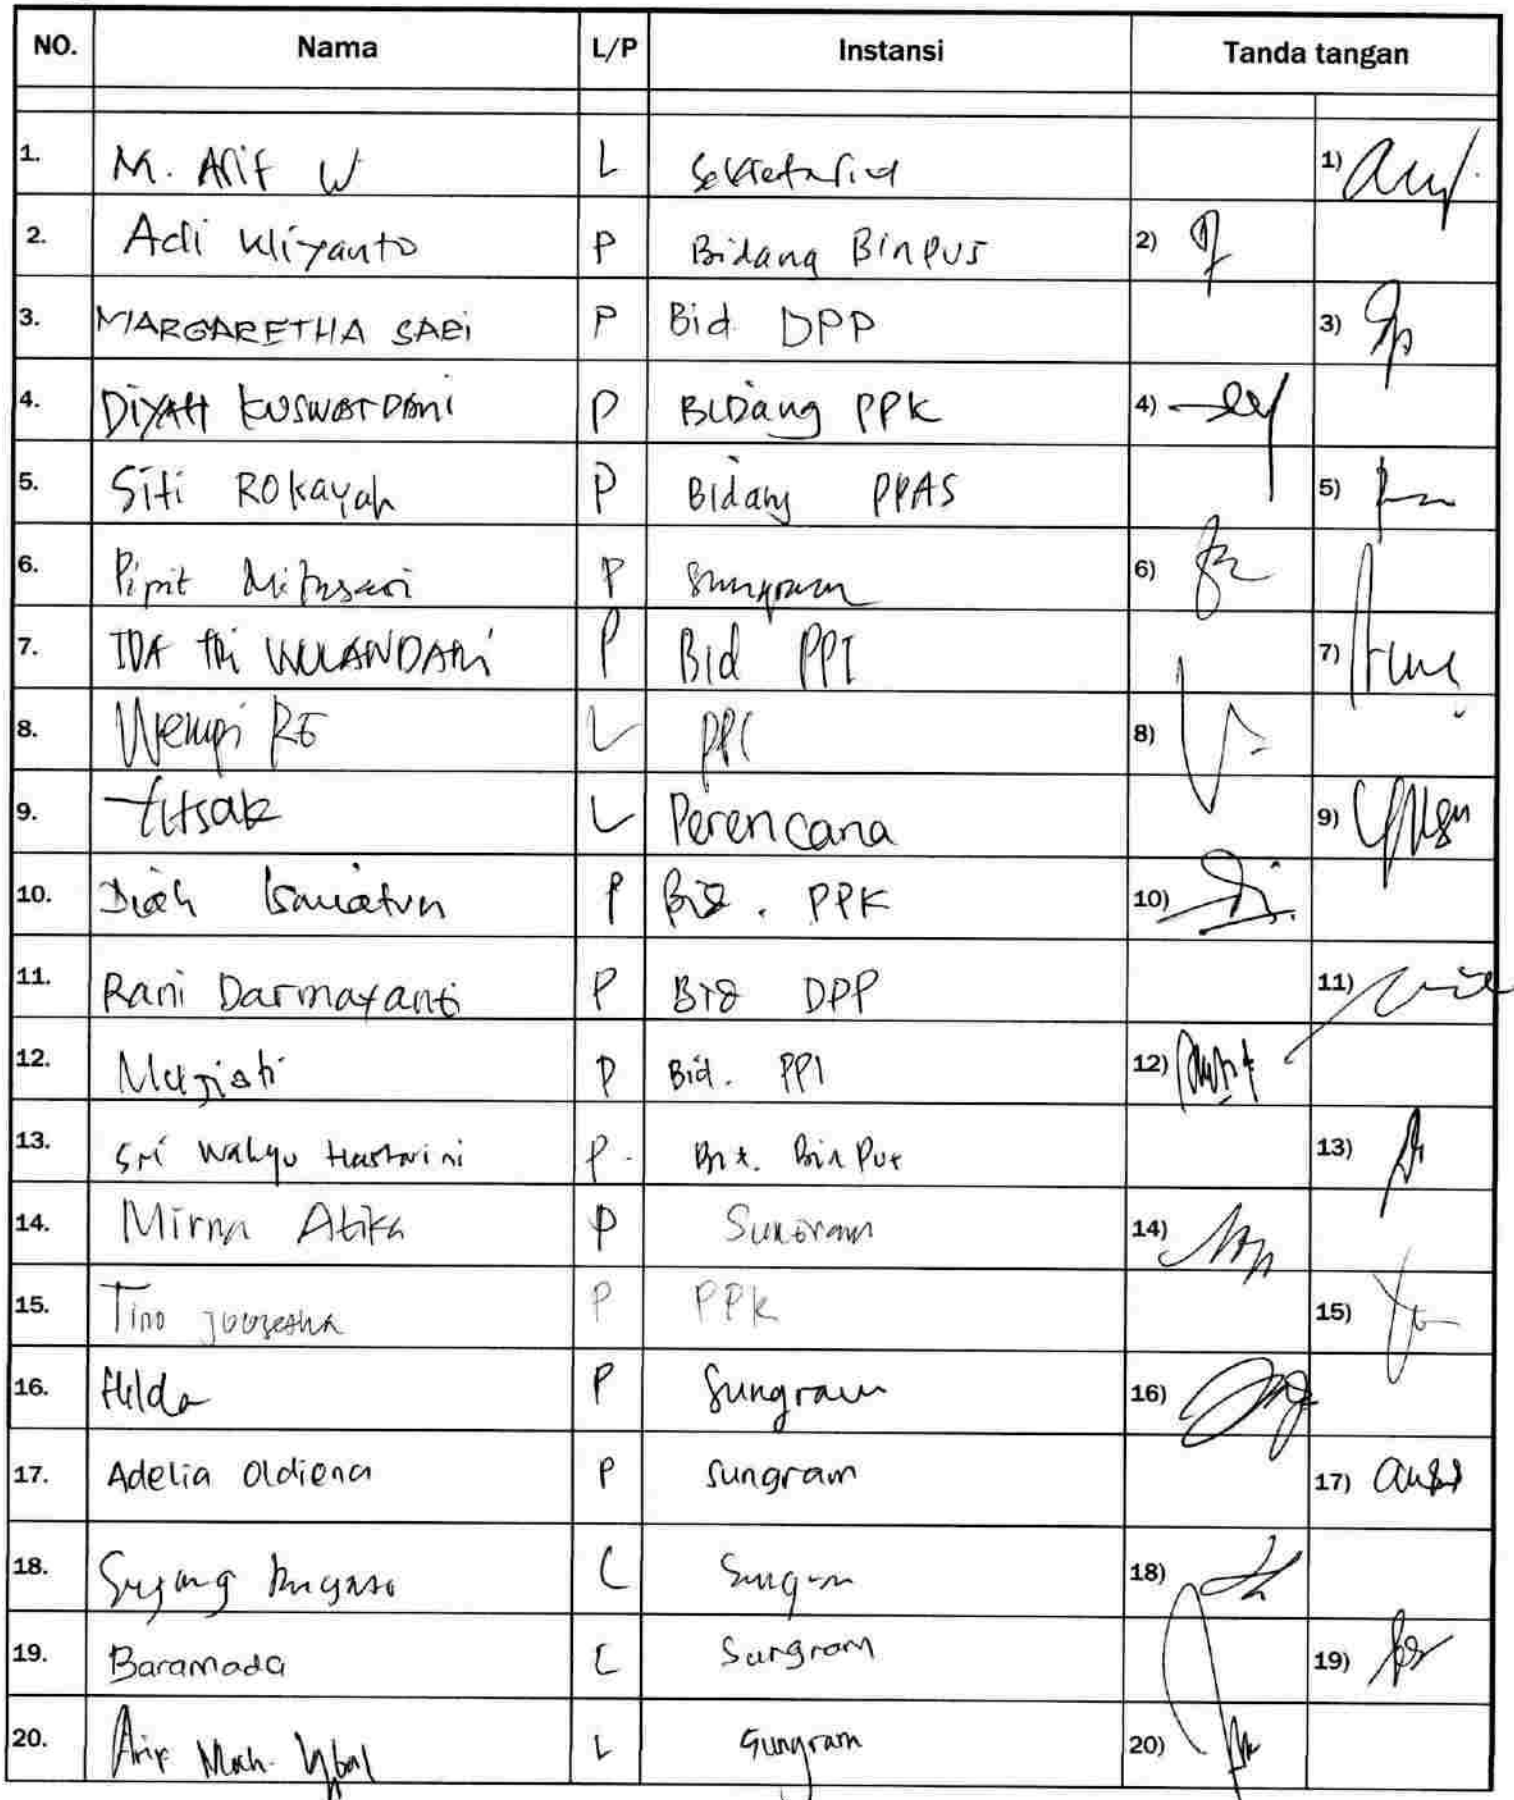 NO. Nama L/P Instansi Tanda tangan
1. M. Arif W L Sekretariat 1)
2. Adi Wliyanto P Bidang Binpus 2)
3. MARGARETHA SARI P Bid DPP 3)
4. DIYAH KUSWARDANI P BIDang PPK 4)
5. Siti ROkayah P Bidang PPAS 5)
6. Pipit P Sungram 6)
7. IDA TRI WULANDARI P Bid PPI 7)
8. Wempi L PPI 8)
9. L Perencana 9)
10. Diah P Bid. PPK 10)
11. Rani Darmayanti P Bid DPP 11)
12. Mujiati P Bid. PPI 12)
13. Sri Wahyu Hastarini P. BinPus 13)
14. Mirna Atika P Sungram 14)
15. Tino P PPK 15)
16. Hilda P Sungram 16)
17. Adelia Oldiena P Sungram 17)
18. L 18)
19. Baramada L Sungram 19)
20. Arif Moh. Iqbal L Sungram 20)